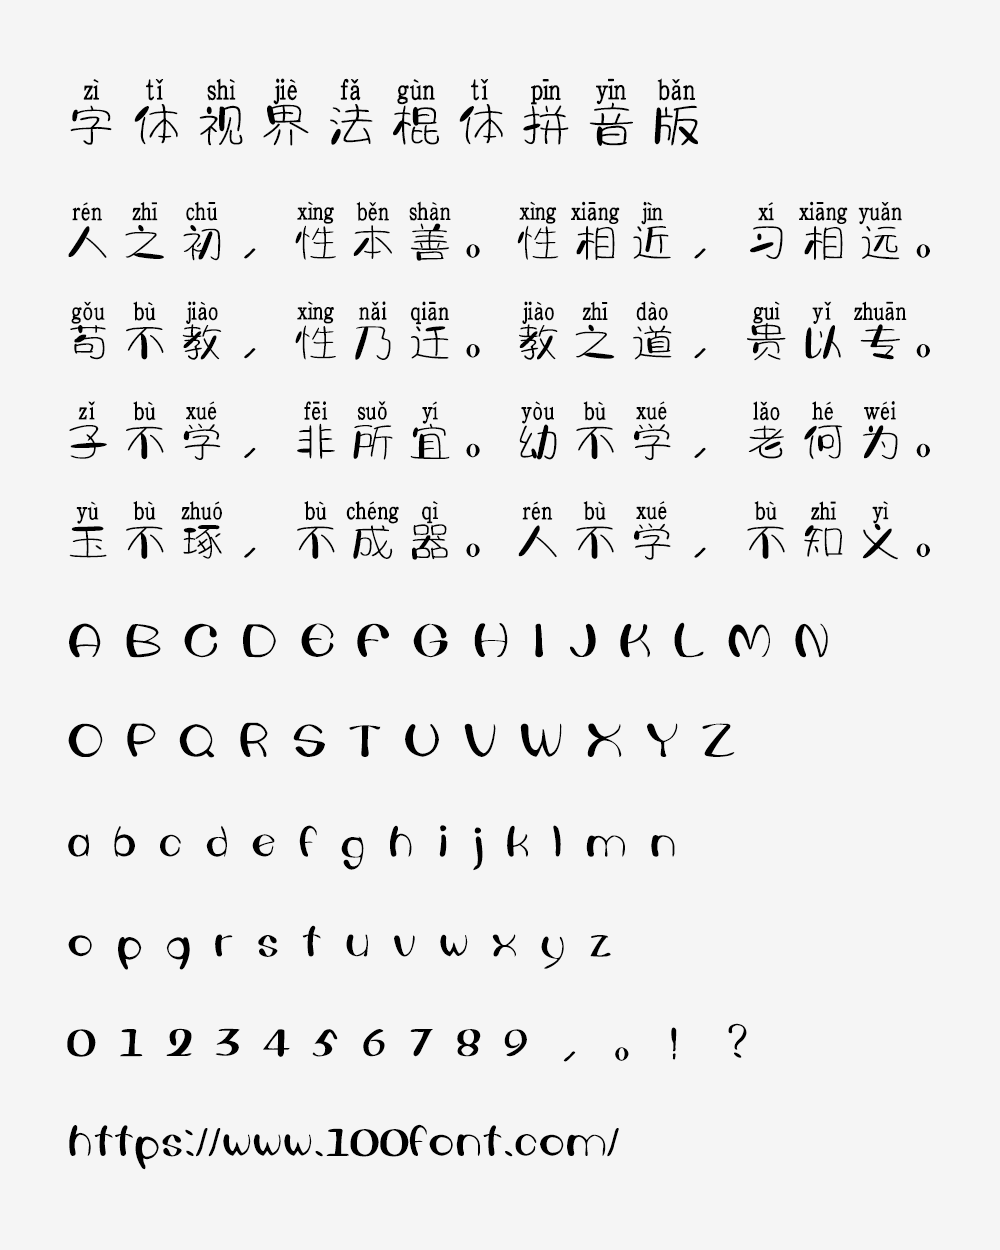 zì tǐ shì jiè fǎ gùn tǐ pīn yīn bǎn
字体视界法棍体拼音版
rén zhī chū xìng běn shàn xìng xiāng jìn xí xiāng yuǎn
人之初，性本善。性相近，习相远。
gǒu bù jiào xìng nǎi qiān jiào zhī dào guì yǐ zhuān
苟不教，性乃迁。教之道，贵以专。
zǐ bù xué fēi suǒ yí yòu bù xué lǎo hé wéi
子不学，非所宜。幼不学，老何为。
yù bù zhuó bù chéng qì rén bù xué bù zhī yì
玉不琢，不成器。人不学，不知义。
A B C D E F G H I J K L M N
O P Q R S T U V W X Y Z
a b c d e f g h i j k l m n
o p q r s t u v w x y z
0 1 2 3 4 5 6 7 8 9 ， 。 ! ?
https://www.100font.com/